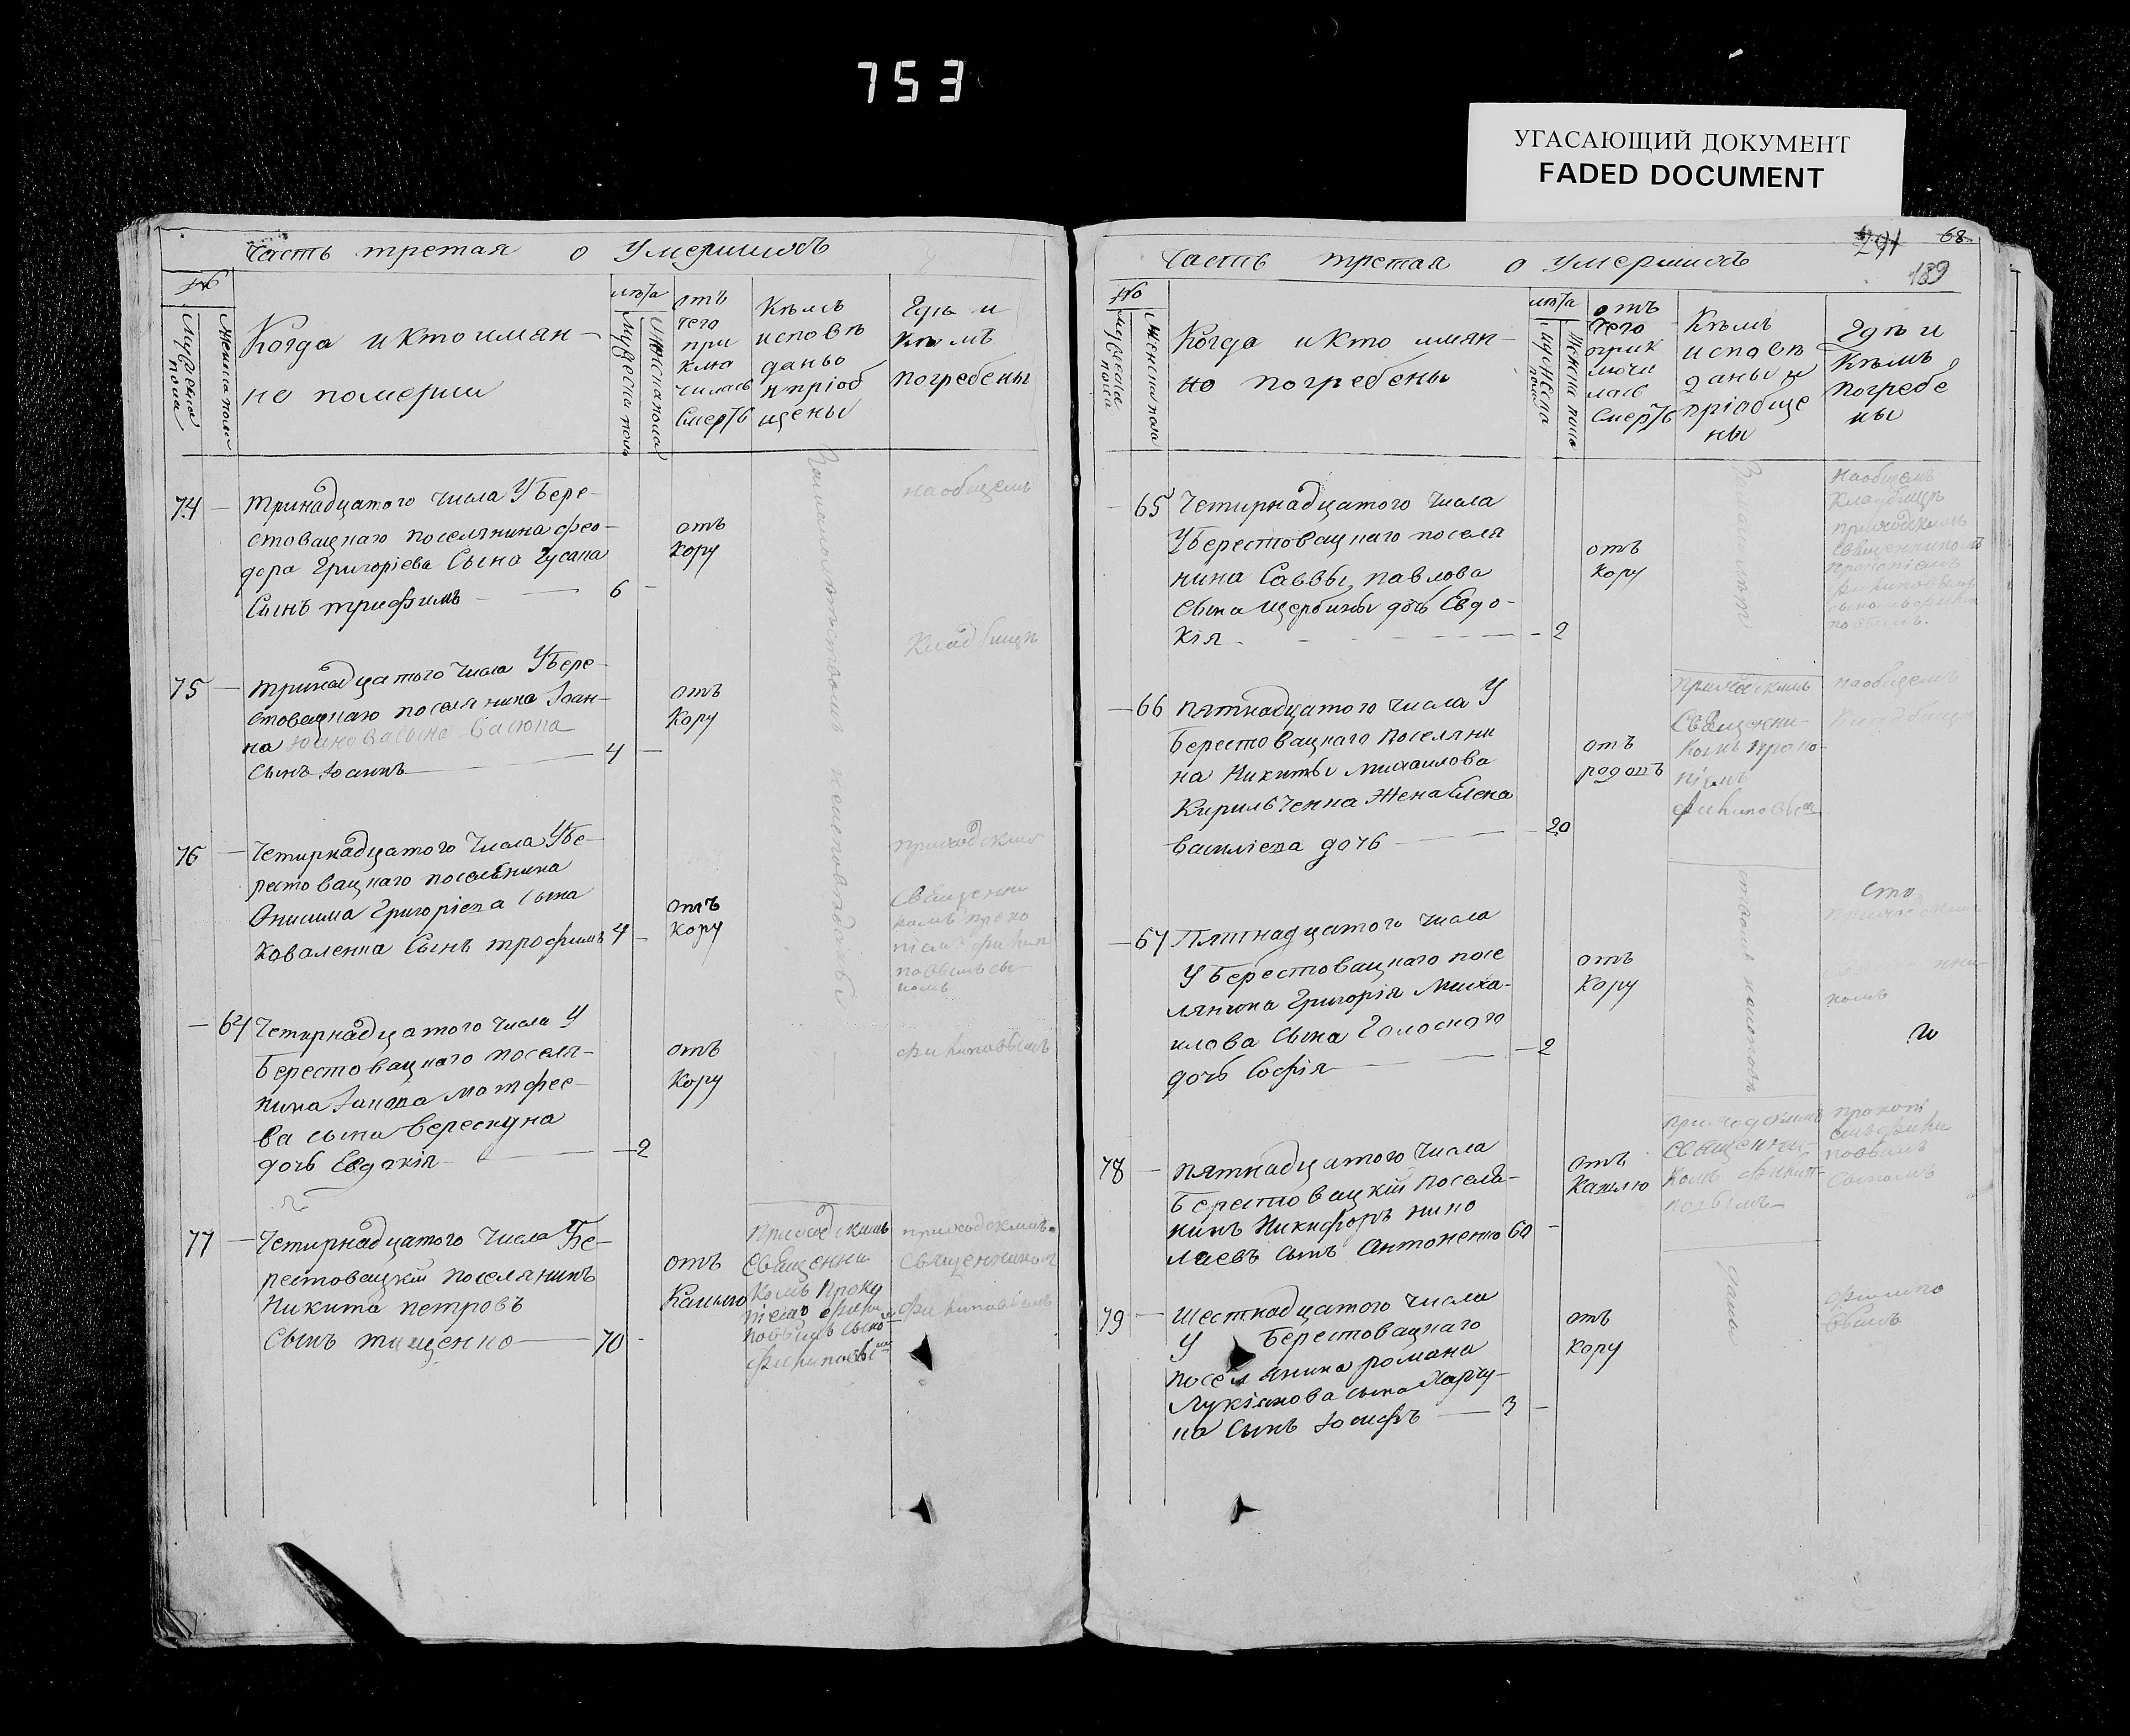 753
УГАСАЮЩИЙ ДОКУМЕНТ
FADED DOCUMENT
Часть третая о Умершихъ
№
Мужеска пола
Женска пола
Когда и кто имян-
но померли
лѣта
Мужеска пола
Женска пола
отъ
чего
при
клю
чилась
Смерть
Кѣмъ
исповѣ
даны
и пріоб
щены
Гдѣ и
кѣмъ
погребены
74 — тринадцатого числа У Бере-
стовацкаго поселянина Фео-
дора Григоріева Сына Гусака
Сынъ трифимъ — 6 —
отъ
кору
на общемъ
75 — тринадцатого числа У Бере-
стовацкаго поселянина Іоан-
на сына
Сынъ Іоаннъ — 4 —
отъ
кору
Кладбищѣ
76 — Четирнадцатого Числа У Бе-
рестовацкаго поселянина
Онисима Григоріева Сына
Коваленка Сынъ трофимъ 4 —
отъ
кору
приходскимъ
Священни
комъ проко
піемъ фили
повымъ сы
номъ
— 64 Четирнадцатого числа У
Берестовацкаго поселя-
нина Іакова матфее-
ва сына верескуна
дочь Евдокія — 2
отъ
кору
филиповымъ
За малолѣтствомъ неисповѣданы
77 — Четирнадцатого Числа Бе-
рестовацкій поселянинъ
Никита петровъ
Сынъ тищенко — 70 —
отъ
Кашлю
Приходскимъ
Священни
комъ Проко
піемъ
повымъ сыно
филиповы
приходскимъ
Священникомъ
филиповымъ
291 68
189
Часть третая о умершихъ
№
Мужеска пола
Женска пола
Когда и кто имян-
но погребены
лѣта
Мужеска пола
Женска пола
отъ
Чего
прик
лючи
лась
Смерть
Кѣмъ
исповѣ
даны и
пріобще
ны
Гдѣ и
Кѣмъ
погребе
ны
— 65 Четирнадцатого Числа
У Берестовацкаго поселя
нина Саввы павлова
Сына Щербины дочь Евдо-
кія — 2
отъ
кору
На общемъ
Кладбищѣ
приходскимъ
Священникомъ
прокопіемъ
филиповымъ
— 66 пятнадцатого числа У
Берестовацкаго Поселяни
на Никиты михаилова
Кирильченка Жена Елена
василіева дочь — 20
отъ
родовъ
приходскимъ
Священни-
комъ проко-
піемъ
филиповым
на общемъ
Кладбищѣ
— 67 Пятнадцатого числа
У Берестовацкаго посе
лянина Григорія Миха-
илова Сына Голоского
дочь Софія — 2
отъ
кору
комъ
78 — пятнадцатого числа
Берестовацкій поселя-
нинъ Никифоръ нико
лаевъ сынъ Антоненко 60 —
отъ
Кашлю
приходскимъ
Священни-
комъ филип-
повымъ
прокопі
емъ фили
повымъ
Сыномъ
79 — Шестнадцатого числа
У Берестовацкаго
поселянина романа
Лукіянова сына Харчу-
на Сынъ Іосифъ — 3 —
отъ
кору
филипо
вымъ